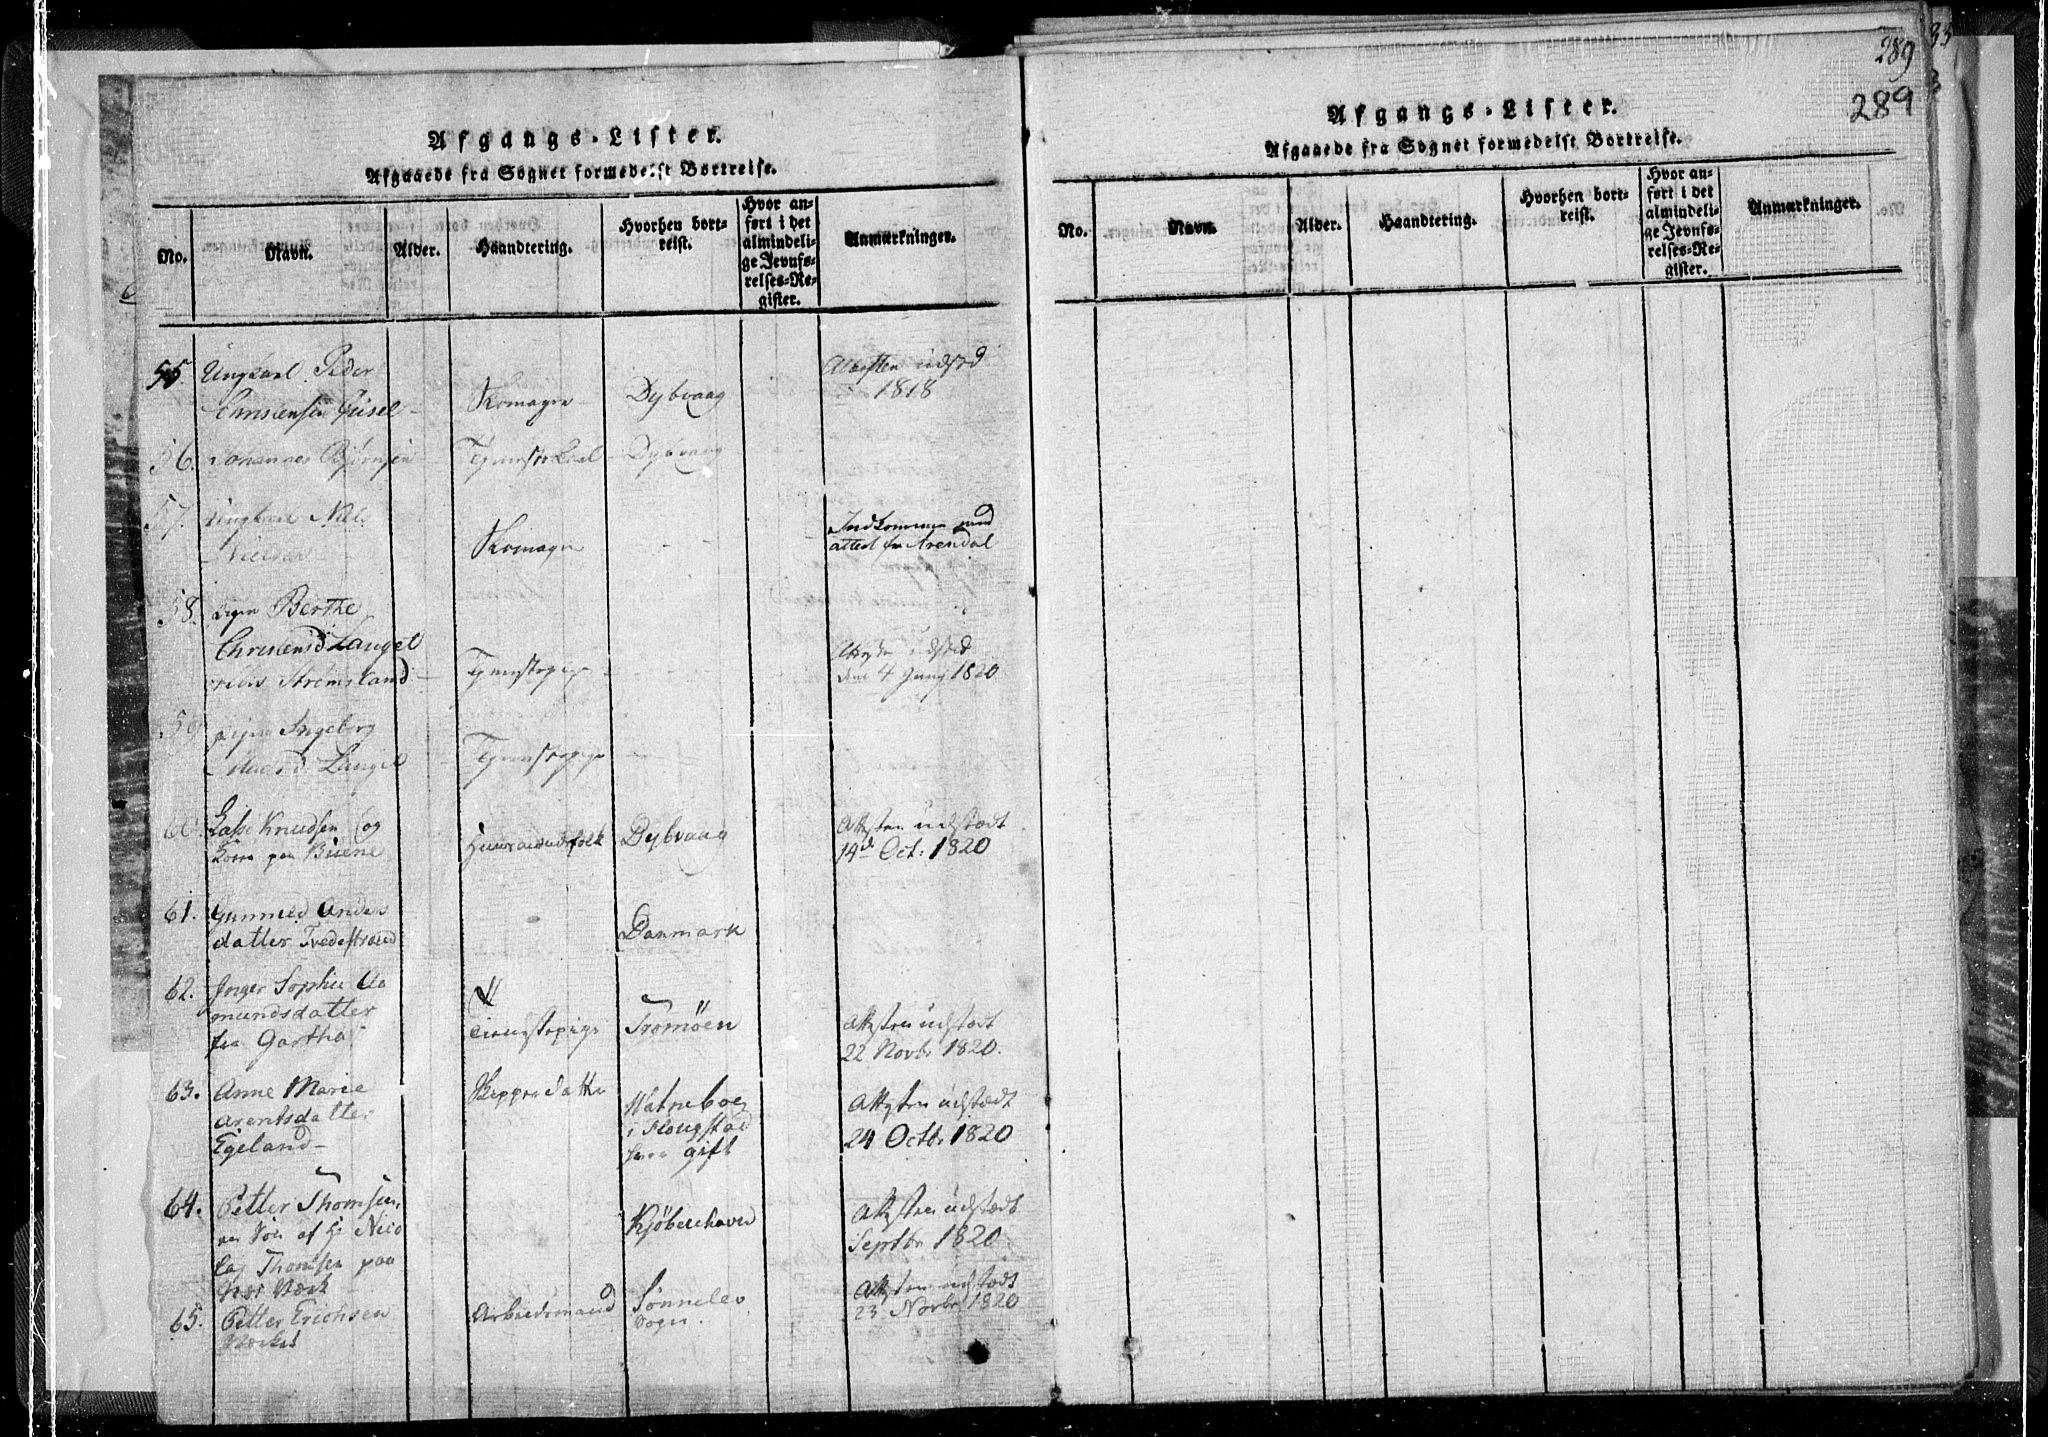 Afgangs-Lister.
Afgaaede fra Sognet formedelst Bortreise.
No.
Navn.
Alder.
Haandtering.
Hvorhen bort-
reist.
Hvor an-
ført i det
almindeli-
ge Jevnfø-
relses-Re-
gister.
Anmærkninger.
55. Ungkarl Peder
Christensen
Skomager
Dybvaag
Attesten udsted
1818
56. Johannes Bjørnsen
Tjenstekarl
Dybvaag
57. Ungkarl Niels
Nielsen
Skomager
Indkommen med
attest fra Arendal
58. Pigen Berthe
Christensd Langel
Strømsland
Tjenstepige
Attesten udsted
den 4 Junj 1820
59. Pigen Ingeborg
Madsd Langel
Tjenstepige
60. Knudsen og
Kone paa
Huusmandsfolk
Dybvaag
Attesten udstædt
14d Oct: 1820
61. Gunnild Anders
datter Tvedestrand
Danmark
62. Inger Sophie Aa
mundsdatter
fra Gartha
Tienestepige
Tromöen
Attesten udstædt
22 Novbr 1820.
63. Anne Marie
Arentsdatter
Egeland
Skipperdatter
i
gift
Attesten udstædt
24 Octbr 1820
64. Petter Thomsen,
en Søn af Hr Nico
lai Thomsen paa
Næs Værk
Kjøbenhavn
Attesten udstædt
Septbr 1820
65. Petter Erichsen
Værket
Arbeidsmand
Sønneløv
Sogn.
Attesten udstædt
23 Novbr 1820
33
289
289
Afgangs-Lister.
Afgaaede fra Sognet formedelst Bortreise.
No.
Navn.
Alder.
Haandtering.
Hvorhen bort-
reist.
Hvor an-
ført i det
almindeli-
ge Jevnfø-
relses-Re-
gister.
Anmærkninger.